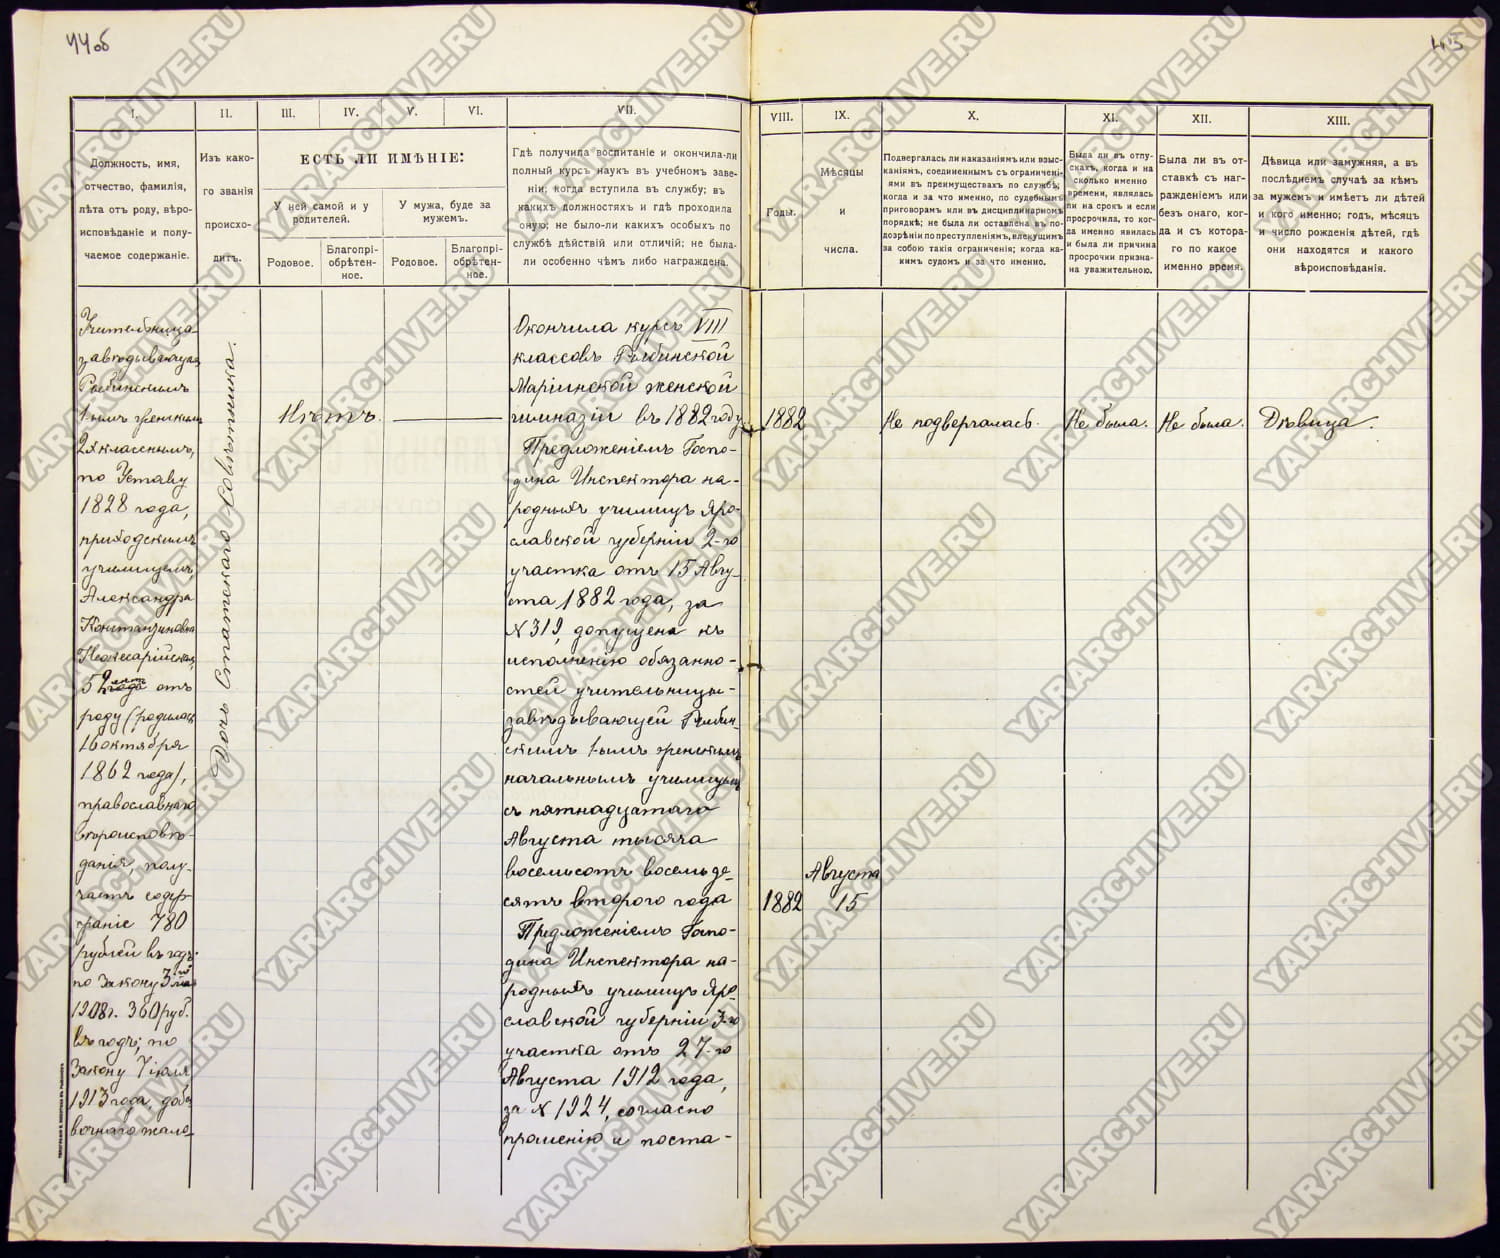 44об
45
I.
II.
III.
IV.
V.
VI.
VII.
VIII.
IX.
X.
XI.
XII.
XIII.
Должность, имя,
отчество, фамилія,
лѣта отъ роду, вѣро-
исповѣданіе и полу-
чаемое содержаніе.
Изъ како-
го званія
происхо-
дитъ.
ЕСТЬ ЛИ ИМѢНІЕ:
У ней самой и у
родителей.
У мужа, буде за
мужемъ.
Родовое.
Благопрі-
обрѣтен-
ное.
Родовое.
Благопрі-
обрѣтен-
ное.
Гдѣ получила воспитаніе и окончила-ли
полный курсъ наукъ въ учебномъ заве-
ніи; когда вступила въ службу; въ
какихъ должностяхъ и гдѣ проходила
оную; не было-ли какихъ особыхъ по
службѣ дѣйствій или отличій; не была-
ли особенно чѣмъ либо награждена.
Годы.
Мѣсяцы
и
числа.
Подвергалась ли наказаніямъ или взыс-
каніямъ, соединеннымъ съ ограничені-
ями въ преимуществахъ по службѣ;
когда и за что именно, по судебнымъ
приговорамъ или въ дисциплинарномъ
порядкѣ; не была ли оставлена въ по-
дозрѣніи по преступленіямъ, влекущимъ
за собою такія ограниченія; когда ка-
кимъ судомъ и за что именно.
Была ли въ отпу-
скахъ, когда и на
сколько именно
времени, являлась
ли на срокъ и если
просрочила, то ког-
да именно явилась
и была ли причина
просрочки призна-
на уважительною.
Была ли въ от-
ставкѣ съ наг-
ражденіемъ или
безъ онаго, ког-
да и съ котора-
го по какое
именно время.
Дѣвица или замужняя, а въ
послѣднемъ случаѣ за кѣмъ
за мужемъ и имѣетъ ли дѣтей
и кого именно; годъ, мѣсяцъ
и число рожденія дѣтей, гдѣ
они находятся и какого
вѣроисповѣданія.
Учительница
завѣдывающая
Рыбинскимъ
1-ымъ женскимъ
2хкласснымъ,
по Уставу
1828 года,
приходскимъ
училищемъ,
Александра
Константиновна
52 лѣтъ отъ
роду (родилась
16 октября
1862 года),
православнаго
вѣроисповѣ-
данія, полу-
чаетъ содер-
жаніе 780
рублей въ годъ:
по Закону 3 мая
1908 г. 360 руб.
въ годъ; по
Закону 7 іюля
1913 года доба
вочнаго жало-
Дочь Статскаго Совѣтника.
Нѣтъ.
Окончила курсъ VIII
классовъ Рыбинской
Маріинской женской
гимназіи въ 1882 году
Предложеніемъ Госпо-
дина Инспектора на-
родныхъ училищъ Яро-
славской губерніи 2-го
участка отъ 15 Авгу-
ста 1882 года, за
№ 319, допущена къ
исполненію обязанно-
стей учительницы-
завѣдывающей Рыбин
скимъ 1-ымъ женскимъ
начальнымъ училищемъ
съ пятнадцатаго
Августа тысяча
восемьсотъ восемьде-
сятъ второго года
Предложеніемъ Госпо-
дина Инспектора на-
родныхъ училищъ Яро-
славской губерніи 3-го
участка отъ 27-го
Августа 1912 года,
за № 1924, согласно
прошенію и поста-
1882
Не подвергалась.
Не была.
Не была.
Дѣвица.
1882
Августа
15
YARARCHIVE.RU